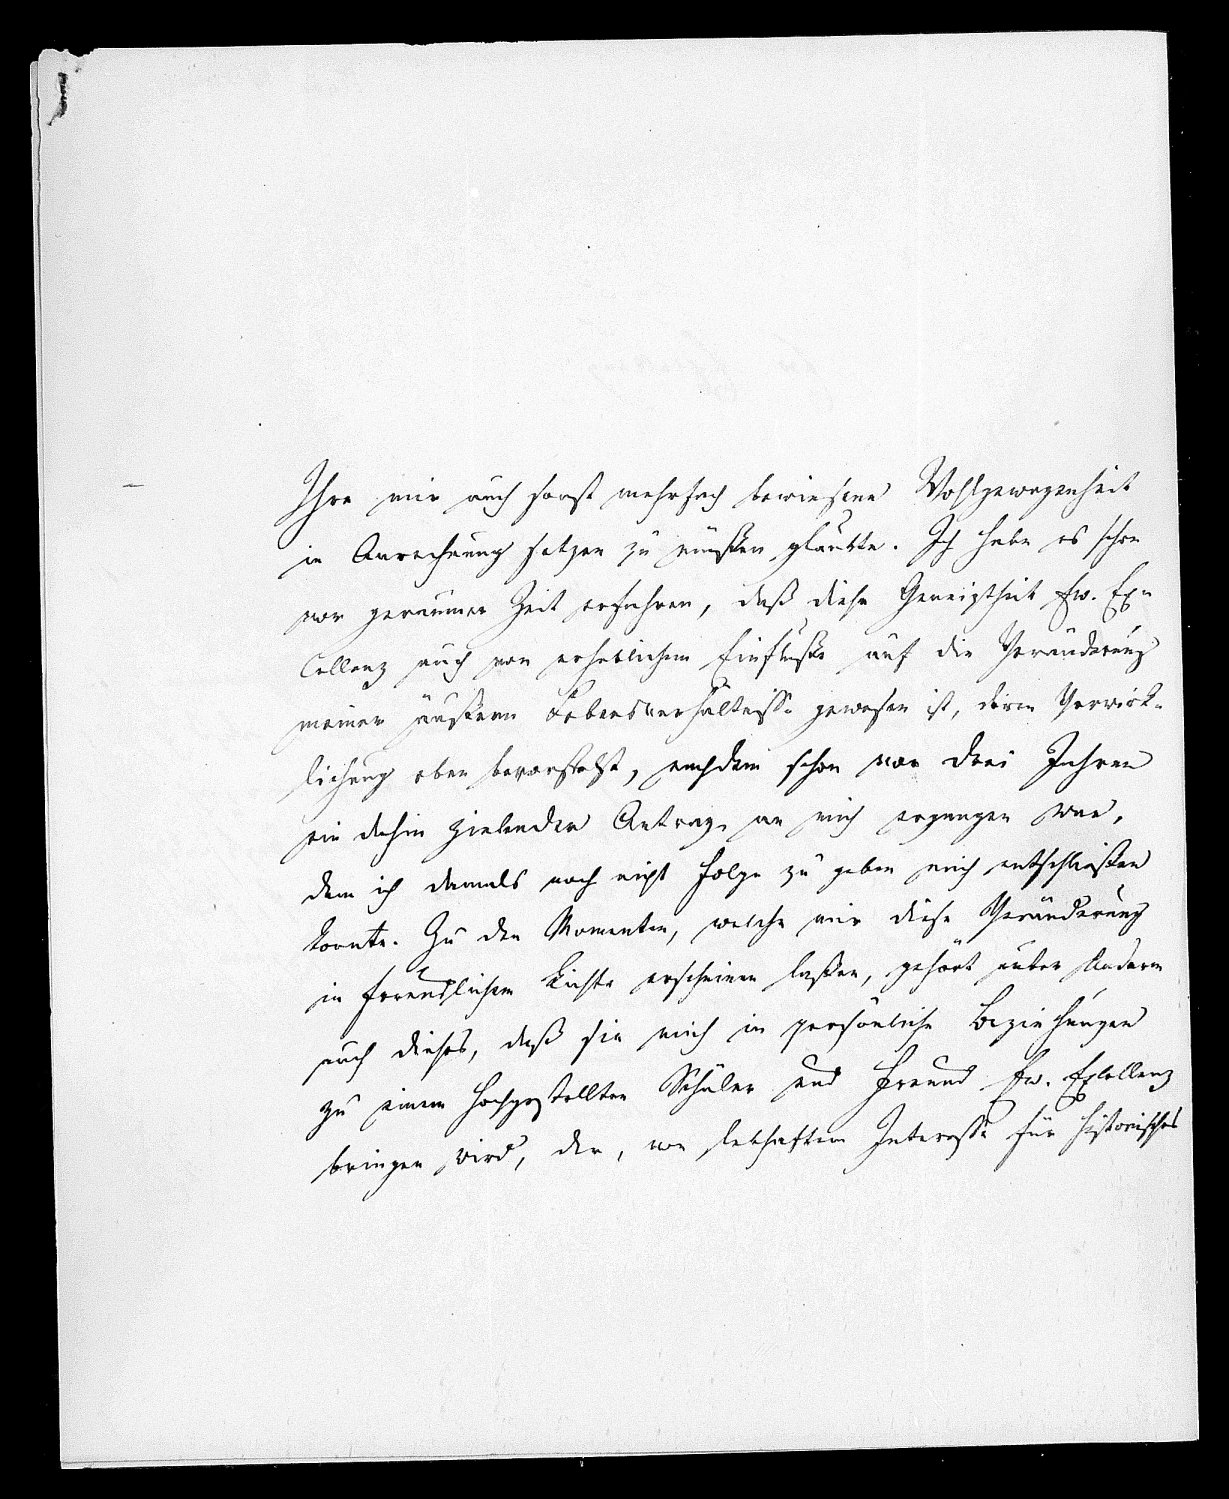 Ihre mir auch sonst mehrfach bewiesene Wohlgewogenheit
in Anrechnung setzen zu müssen glaubte. Ich habe es schon
vor geraumer Zeit erfahren, daß diese Geneigtheit Ew. Ex-
cellenz auch von erheblichem Einflusse auf die Veränderung
meiner äußern Lebensverhältnisse gewesen ist, deren Verwirk-
lichung eben bevorsteht, nachdem schon vor drei Jahren
ein dahin zielender Antrag an mich ergangen war,
dem ich damals noch nicht Folge zu geben mich entschließen
konnte. Zu den Momenten, welche mir diese Veränderung
in freundlichem Lichte erscheinen lassen, gehört unter Andern
auch dieses, daß sie mich in persönliche Beziehungen
zu einem hochgestellten Schüler und Freund Ew. Excellenz
bringen wird, der, von lebhaftem Interesse für historisches